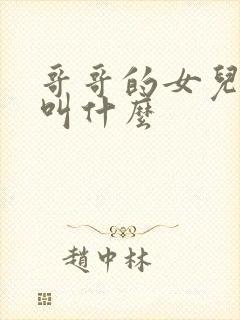 哥哥的女兒
叫什麼
趙中林